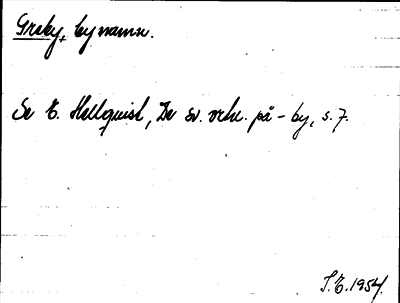 Greby, bynamn.
Se E. Hellquist, De sv. ortn. på - by, s. 7.
T.E. 1954.